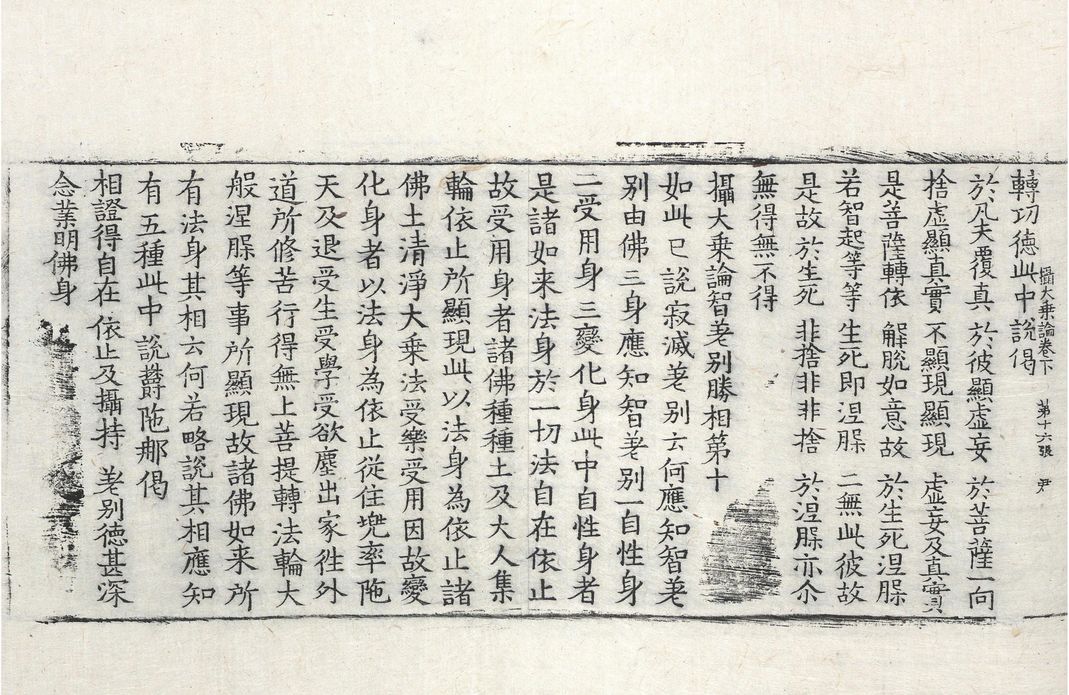 轉功徳此中說偈
攝大乗論卷下 第十六張 尹
於凡夫覆真 於彼顯虚妄 於菩薩一向
捨虚顯真實 不顯現顯現 虚妄及真實
是菩薩轉依 解脫如意故 於生死涅槃
若智起等等 生死即涅槃 二無此彼故
是故於生死 非捨非非捨 於涅槃亦尒
無得無不得
攝大乗論智差别勝相第十
如此已說寂滅差别云何應知智差
别由佛三身應知智差别一自性身
二受用身三變化身此中自性身者
是諸如来法身於一切法自在依止
故受用身者諸佛種種土及大人集
輪依止所顯現此以法身為依止諸
佛土清淨大乗法受樂受用因故變
化身者以法身為依止從住兜率陁
天及退受生受學受欲塵出家徃外
道所修苦行得無上菩提轉法輪大
般涅槃等事所顯現故諸佛如来所
有法身其相云何若略說其相應知
有五種此中說欝陁那偈
相證得自在 依止及攝持 差别徳甚深
念業明佛身